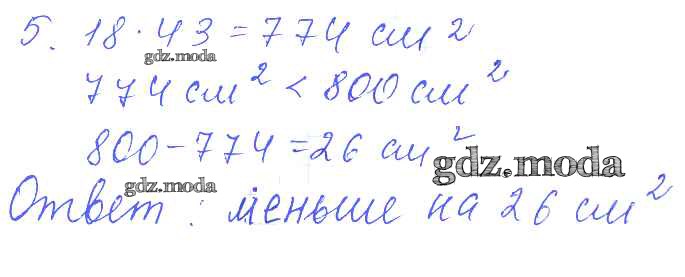 5. 18 · 43 = 774 см²
gdz.moda
774 см² < 800 см²
800 - 774 = 26 см²
gdz.moda
gdz.moda
Ответ: меньше на 26 см²